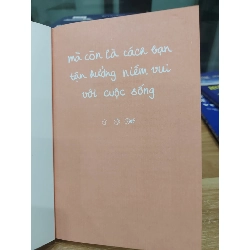 mà còn là cách bạn
tận hưởng niềm vui
với cuộc sống